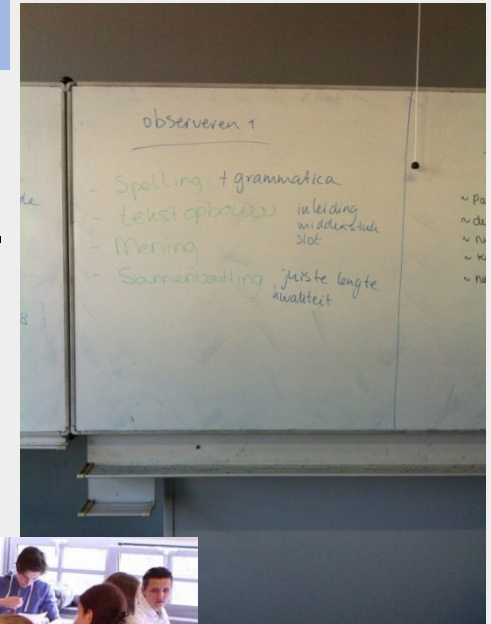 observeren 1
- Spelling + grammatica
- tekstopbouw inleiding
middenstuk
slot
- Mening
- Samenvatting juiste lengte
kwaliteit
~ Pa
~ de
~ n
~ k
~ n